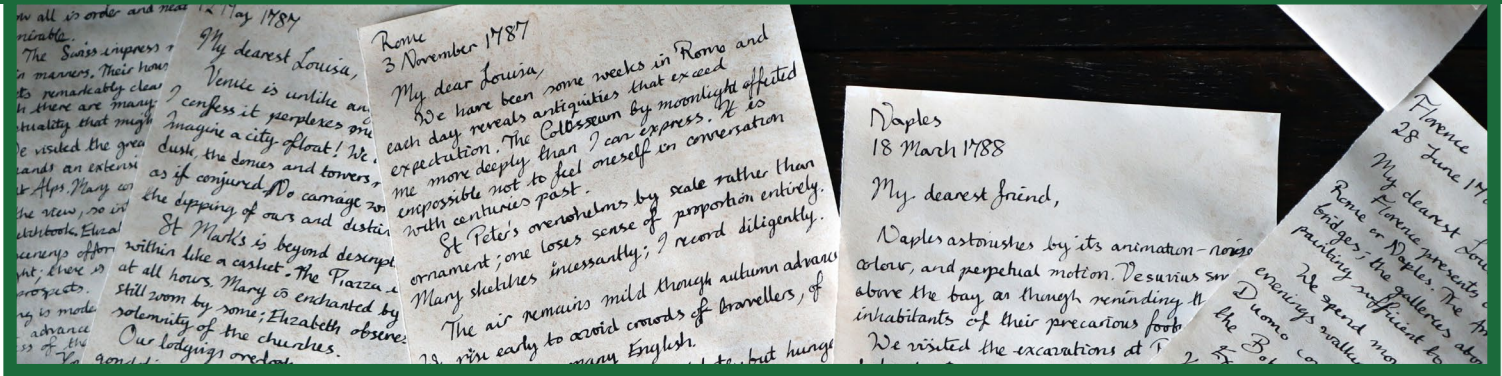 w all is order and nea
mirable.
The Swiss impress
n manners. Their hous
ts remarkably clea
h there are many
tuality that migh
e visited the grea
ands an extensi
Alps. Mary
the view, so
etchbook, Eliza
scenery
ht; there is
prospects.
is mode
advance
ss of the
12 May 1787
My dearest Louisa,
Venice is unlike an
confess it perplexes me
Imagine a city afloat! We
dusk, the domes and towers,
as if conjured. No carriage
the dipping of oars and distan
St Mark's is beyond descript
within like a casket. The Piazza
at all hours, Mary is enchanted by
still room by some; Elizabeth observes
solemnity of the churches.
Our lodgings
Rome
3 November 1787
My dear Louisa,
We have been some weeks in Rome and
each day reveals antiquities that exceed
expectation. The Colosseum by moonlight affected
me more deeply than I can express. It is
impossible not to feel oneself in conversation
with centuries past.
St Peter's overwhelms by scale rather than
ornament; one loses sense of proportion entirely.
Mary sketches incessantly; I record diligently.
The air remains mild though autumn advanc
rise early to avoid crowds of travellers, of
many English.
but hunge
Naples
18 March 1788
My dearest friend,
Naples astonishes by its animation – noise
colour, and perpetual motion. Vesuvius sm
above the bay as though reminding th
inhabitants of their precarious foot
We visited the excavations at
Florence
28 June 17
My dearest Lou
Florence presents
Rome or Naples. The
bridges, the galleries abo
painting sufficient
We spend mo
evenings walk
Duomo
the Bo